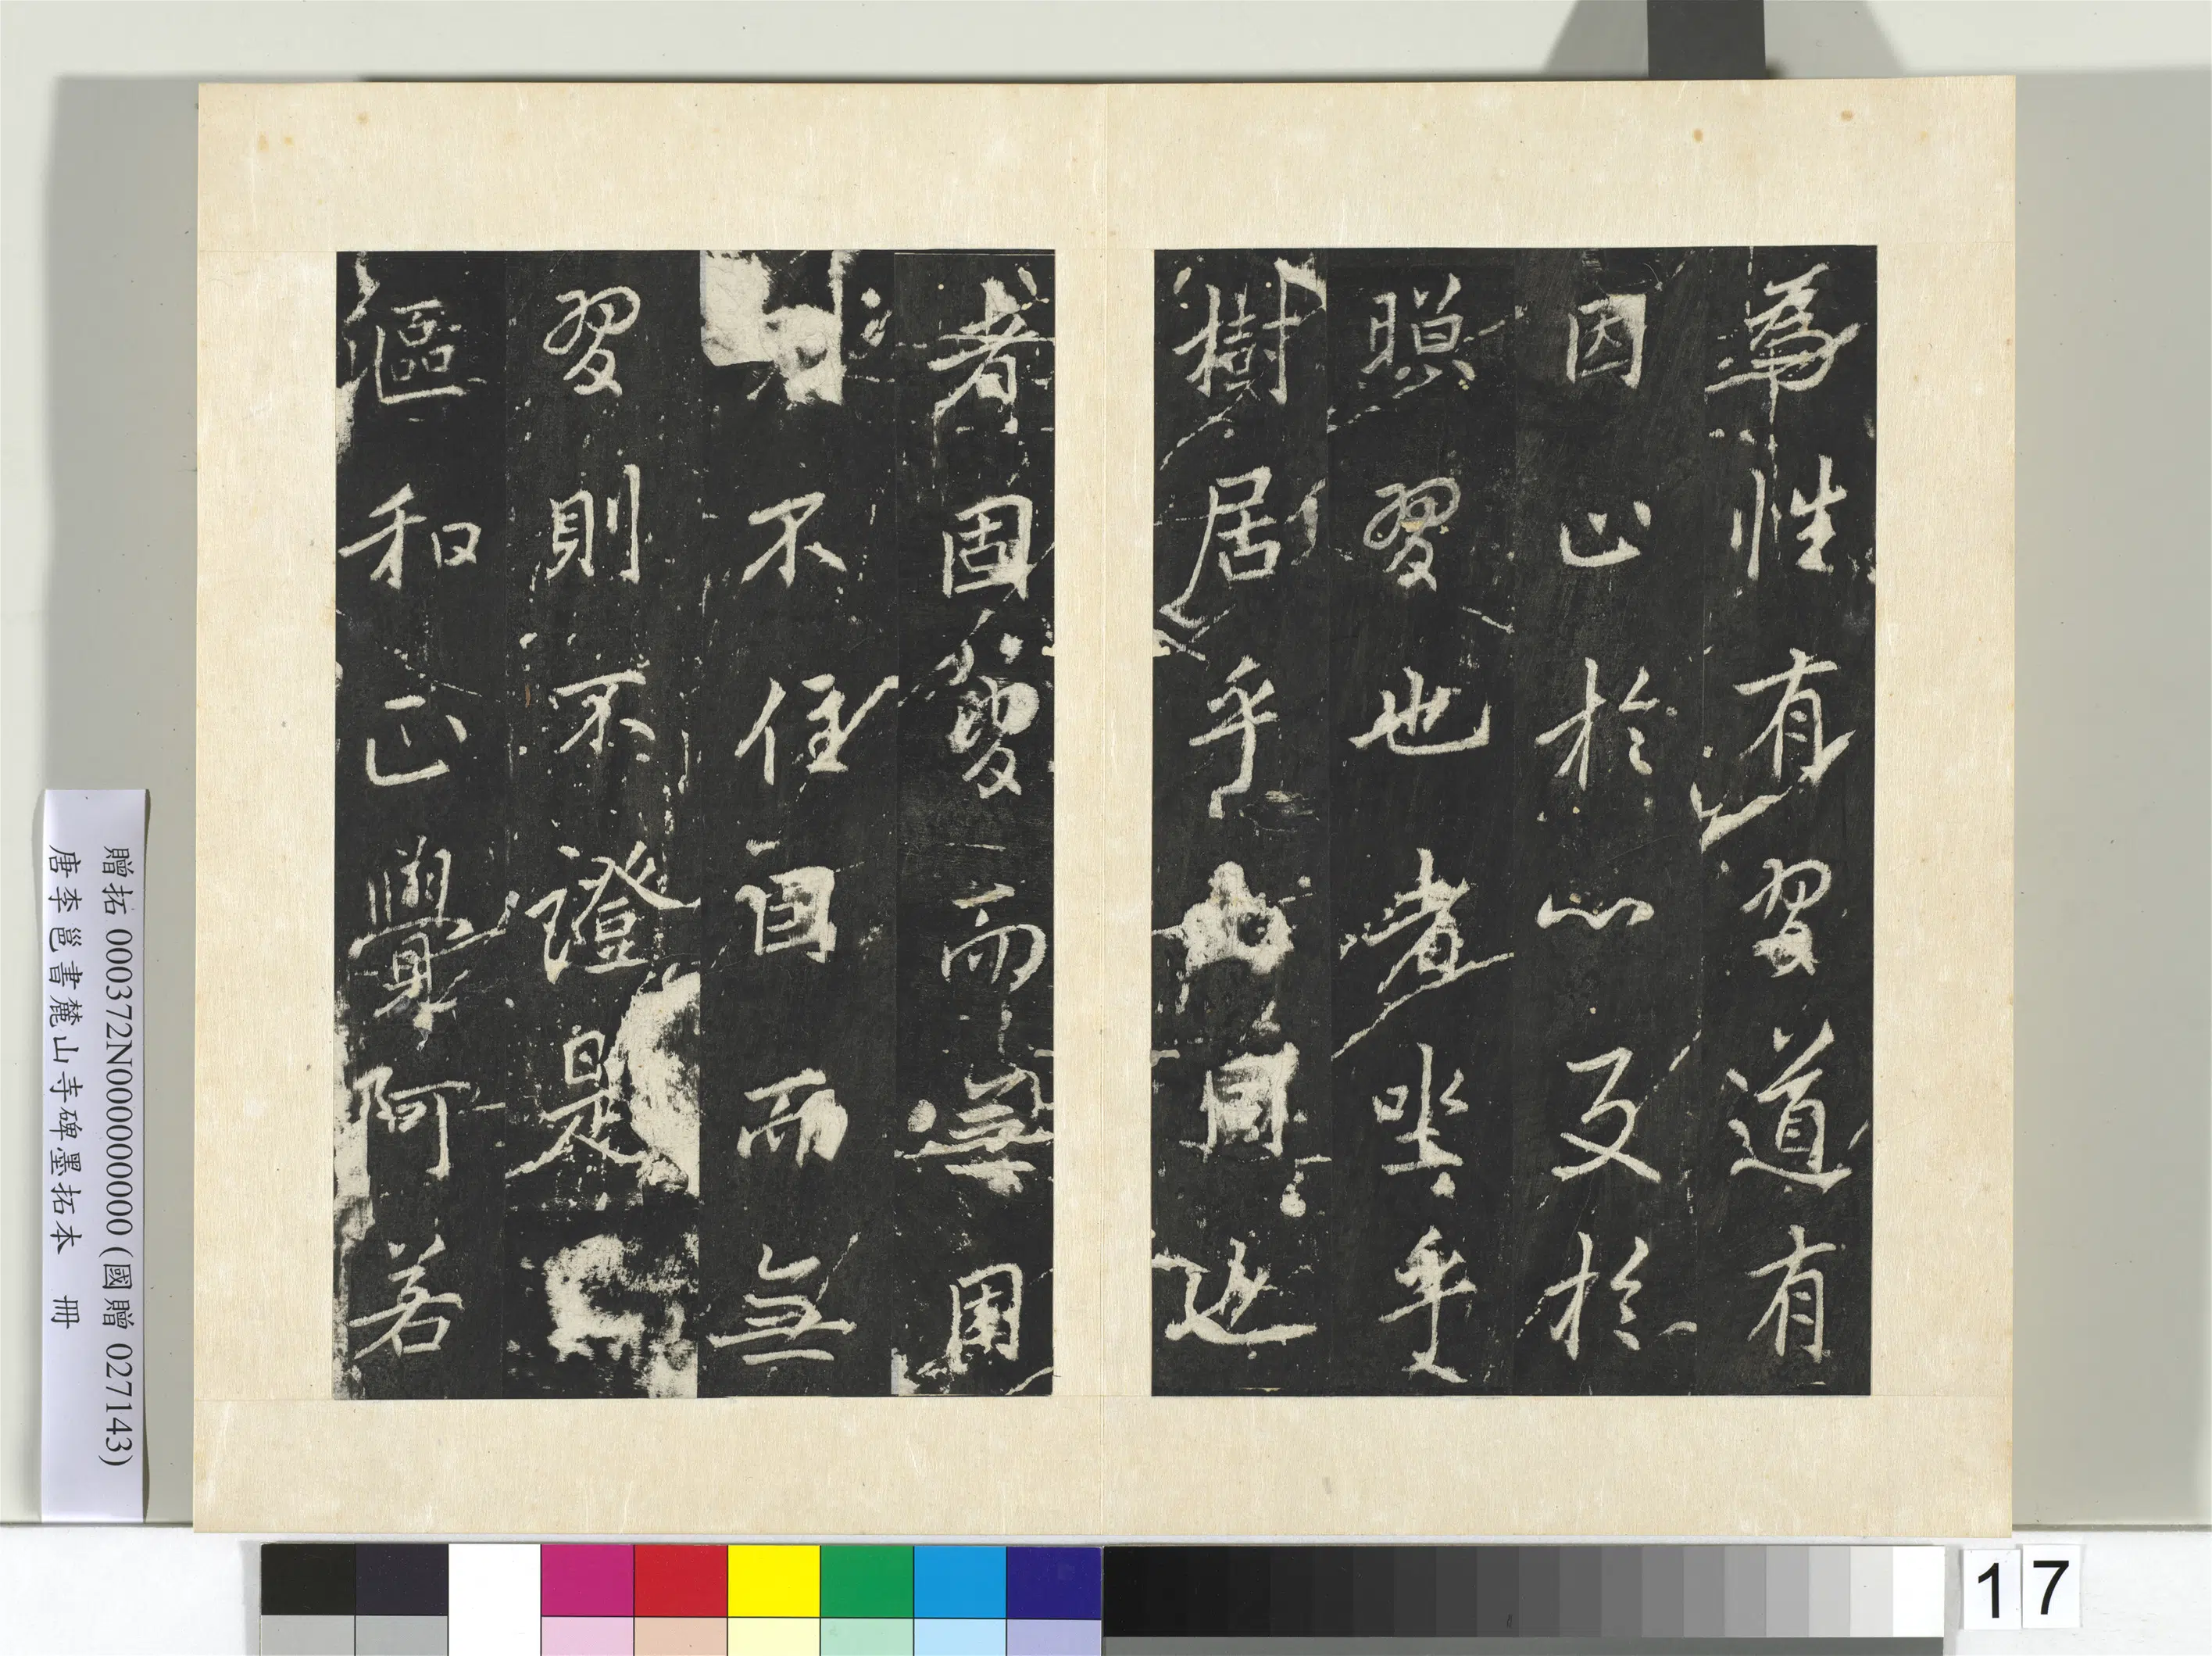 為性有習道有
因止於心反於
照習也者坐乎
樹居乎同也
者固受而無用
不住自而無
習則不證是
漚和正覺阿若
贈拓 000372N000000000 (國贈 027143)
唐李邕書麓山寺碑墨拓本 冊
17